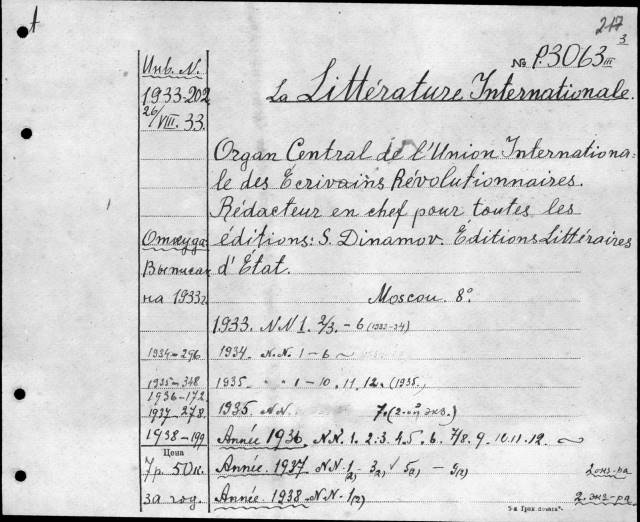 247
3
№ P.3063 III
La Littérature Internationale.
Инв. N.
1933-202
26/VIII. 33.
Organ Central de l'Union Internationa-
le des Écrivains Révolutionnaires.
Rédacteur en chef pour toutes les
Откуда éditions: S. Dinamov. Editions Littéraires
Выписан d'État.
на 1933г. Moscou. 8°.
1933. NN 1. 2/3. – 6 (1933-34)
1934-296 1934. N.N. 1 – 6
1935-348 1935. " " 1 – 10. 11. 12. (1935.)
1936-172
1937-278 1935. NN. 7. (2-ой экз.)
1938-199 Année 1936. N.N. 1. 2. 3. 4. 5. 6. 7/8. 9. 10. 11. 12.
Цена
7р. 50к. Année. 1937 NN 1(2) – 3(2) ✓ 5(2) – 9(2) 2 экз-ра
за год. Année. 1938 NN 1(2) 2. экз-ра